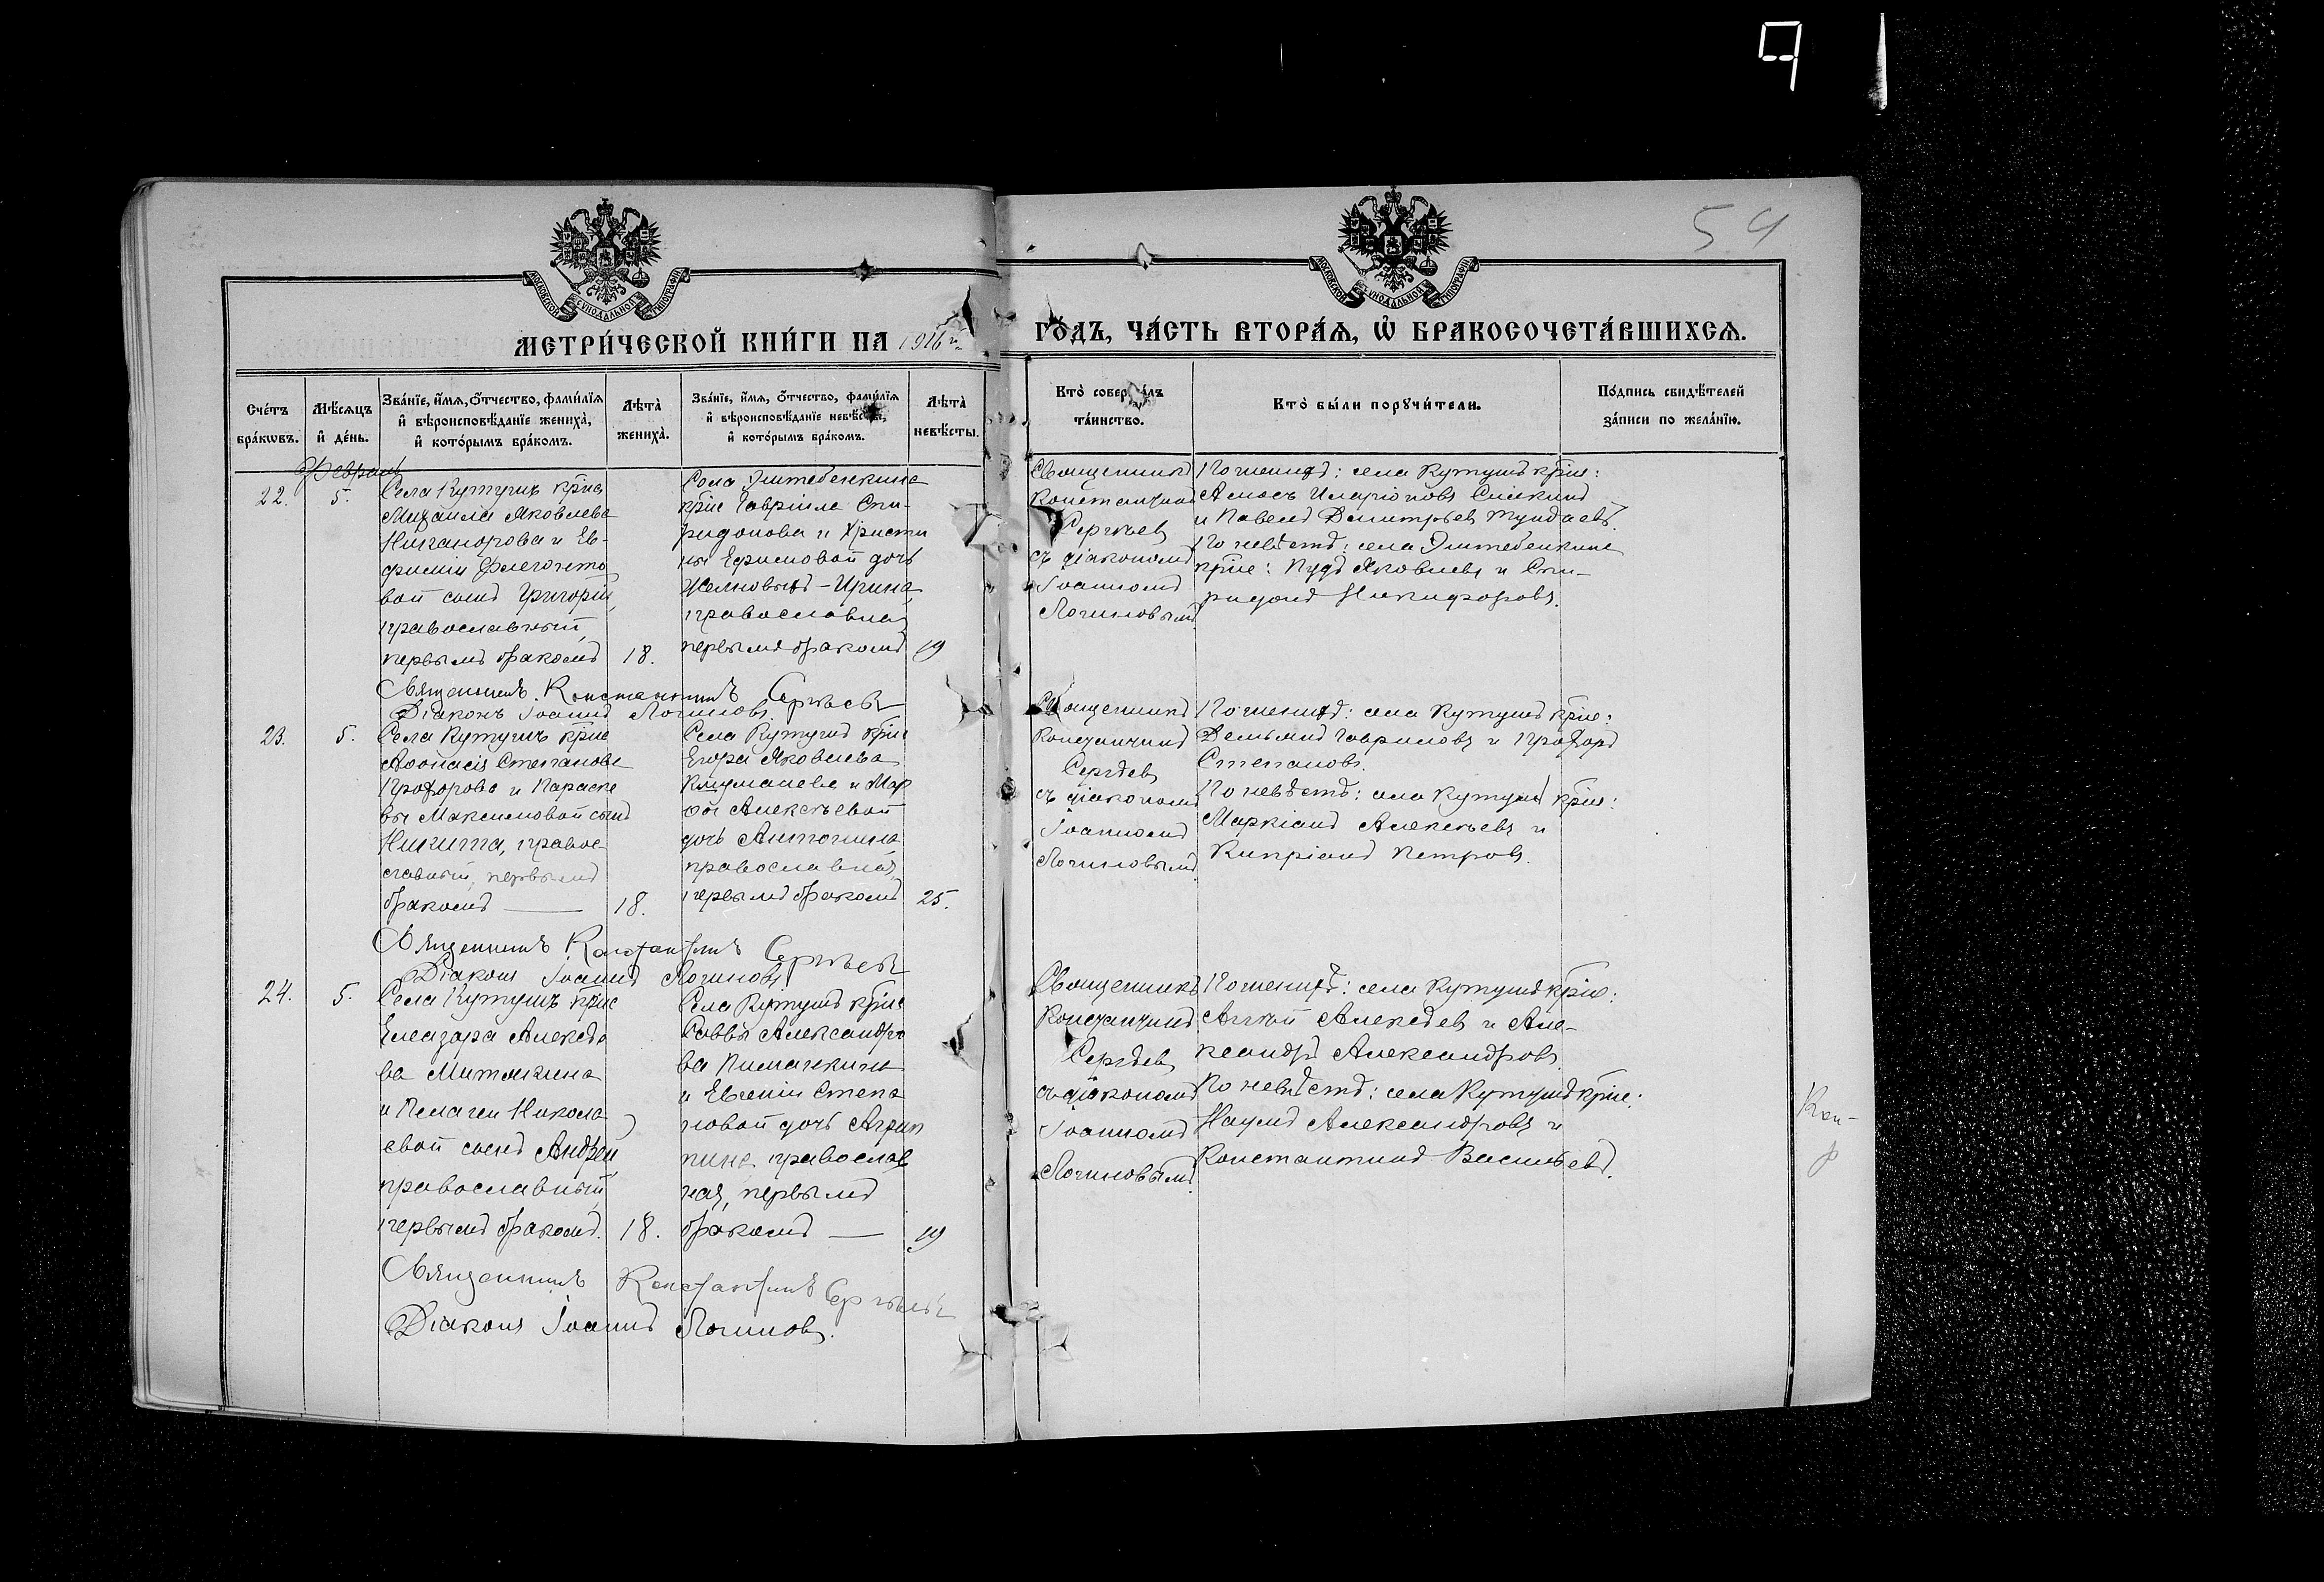 54
МОСКОВСКОЙ СУНОДАЛЬНОЙ ТИПОГРАФІИ
МОСКОВСКОЙ СУНОДАЛЬНОЙ ТИПОГРАФІИ
МЕТРИ́ЧЕСКОЙ КНИ́ГИ НА 1916 й
ГО́ДЪ, ЧА́СТЬ ВТОРА́Я, Ѡ҆ БРАКОСОЧЕТА́ВШИХСѦ.
Сче́тъ бра́кѡвъ.
Мѣ́сѧцъ и҆ де́нь.
Зва́нїе, и҆́мѧ, ѻ҆́тчество, фами́лїѧ и҆ вѣроисповѣ́данїе жениха̀, и҆ кото́рымъ бра́комъ.
Лѣта̀ жениха̀.
Зва́нїе, и҆́мѧ, ѻ҆́тчество, фами́лїѧ и҆ вѣроисповѣ́данїе невѣ́сты, и҆ кото́рымъ бра́комъ.
Лѣта̀ невѣ́сты.
Кто̀ соверша́лъ та́инство.
Кто̀ бы́ли порꙋчи́тели.
По́дпись свидѣ́телей за́писи по жела́нїю.
Февраль
22.
5.
Села Кутушъ кр̃не
Михаила Яковлева
Никанорова и Ев-
фиміи Флегонто
вой сынъ Григорій,
православный,
первымъ бракомъ
18.
Села
кр̃не Гавріила Спи-
ридонова и Христи
ны Ефимовой дочь
Ирина,
православная,
первымъ бракомъ
19
Священникъ
Константинъ
Сергѣевъ
съ діакономъ
Іоанномъ
Логиновымъ.
По женихѣ: села Кутушъ кр̃не:
Амосъ Иларіоновъ
и Павелъ Димитріевъ
По невѣстѣ: села
кр̃не: Пудъ Яковлевъ и Спи-
ридонъ Никифоровъ.
Священникъ Константинъ Сергѣевъ
Діаконъ Іоаннъ Логиновъ.
23.
5.
Села Кутушъ кр̃не
Аѳонасія Степанова
Прохорова и Параске
вы Максимовой сынъ
Никита, право
славный, первымъ
бракомъ —
18.
Села Кутушъ кр̃не
Егора Яковлева
и Мар
ѳы Алексѣевой
дочь Антонина
православная,
первымъ бракомъ
25.
Священникъ
Константинъ
Сергѣевъ
съ діакономъ
Іоанномъ
Логиновымъ.
По женихѣ: села Кутушъ кр̃не:
Гавриловъ и Прохоръ
Степановъ.
По невѣстѣ: села Кутушъ кр̃не:
Маркіанъ Алексѣевъ и
Кипріанъ Петровъ.
Священникъ Константинъ Сергѣевъ
Діаконъ Іоаннъ Логиновъ
24.
5.
Села Кутушъ кр̃не
Елеазара Алексѣе
ва Митюкина
и Пелагеи Никола
евой сынъ Андрей,
православный,
первымъ бракомъ.
18.
Села Кутушъ кр̃не
Саввы Александро
ва
и Евгеніи Степа
новой дочь Агрип
пина, православ
ная, первымъ
бракомъ —
19
Священникъ
Константинъ
Сергѣевъ
съ діакономъ
Іоанномъ
Логиновымъ.
По женихѣ: села Кутушъ кр̃не:
Алексѣевъ и Але-
ксандръ Александровъ.
По невѣстѣ: села Кутушъ кр̃не:
Наумъ Александровъ и
Константинъ Васильевъ.
Священникъ Константинъ Сергѣевъ
Діаконъ Іоаннъ Логиновъ.